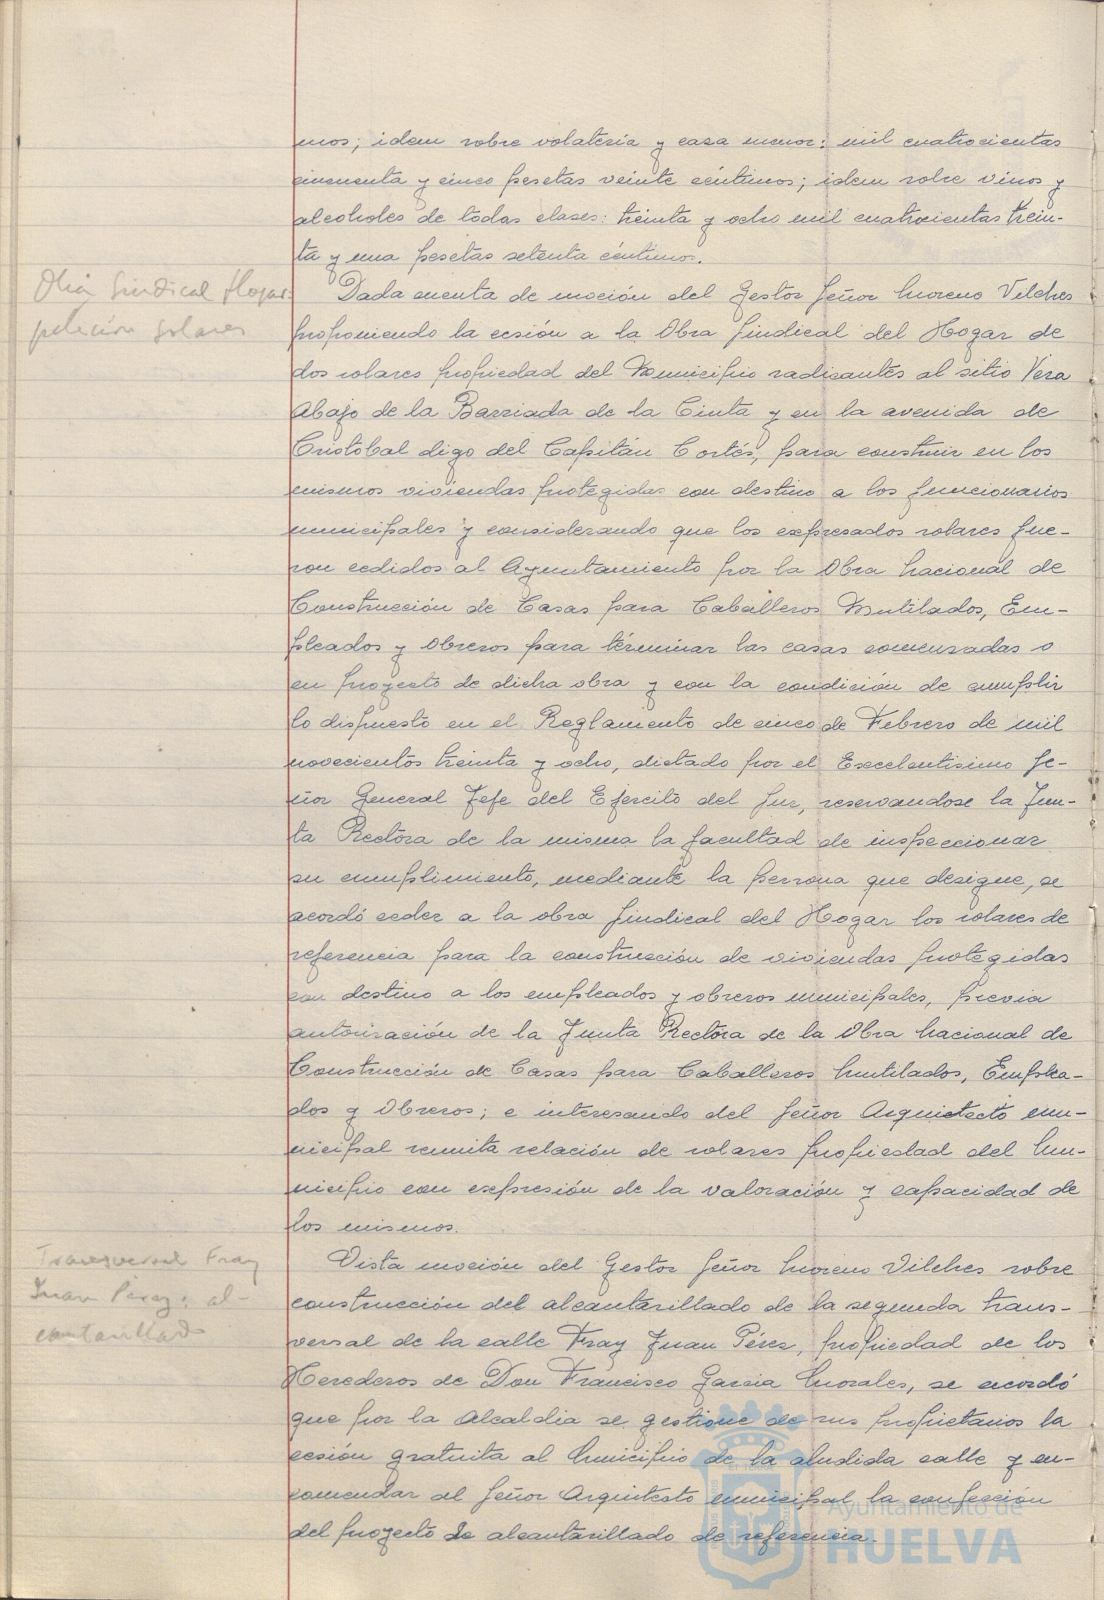 mos; idem sobre volatería y caza menor: mil cuatrocientas
cincuenta y cinco pesetas veinte céntimos; idem sobre vinos y
alcoholes de todas clases: treinta y ocho mil cuatrocientas trein-
ta y una pesetas setenta céntimos.
Obra Sindical Hogar
petición solares
Dada cuenta de moción del Gestor Señor Moreno Vilches
proponiendo la cesión a la Obra Sindical del Hogar de
dos solares propiedad del Municipio radicantes al sitio Vera
Abajo de la Barriada de la Cinta y en la avenida de
Cristobal digo del Capitán Cortés, para construir en los
mismos viviendas protegidas con destino a los funcionarios
municipales y considerando que los expresados solares fue-
ron cedidos al Ayuntamiento por la Obra Nacional de
Construcción de Casas para Caballeros Mutilados, Em-
pleados y Obreros para terminar las casas comenzadas o
en proyecto de dicha obra y con la condición de cumplir
lo dispuesto en el Reglamento de cinco de Febrero de mil
novecientos treinta y ocho, dictado por el Excelentisimo Se-
ñor General Jefe del Ejercito del Sur, reservandose la Jun-
ta Rectora de la misma la facultad de inspeccionar
su cumplimiento, mediante la persona que designe, se
acordó ceder a la obra Sindical del Hogar los solares de
referencia para la construcción de viviendas protegidas
con destino a los empleados y obreros municipales, previa
autorización de la Junta Rectora de la Obra Nacional de
Construcción de Casas para Caballeros Mutilados, Emplea-
dos y Obreros; e interesando del Señor Arquitecto mu-
nicipal remita relación de solares propiedad del Mu-
nicipio con expresión de la valoración y capacidad de
los mismos.
Transversal Fray
Juan Pérez: al-
cantarillado
Vista moción del Gestor Señor Moreno Vilches sobre
construcción del alcantarillado de la segunda trans-
versal de la calle Fray Juan Pérez, propiedad de los
Herederos de Don Francisco Garcia Morales, se acordó
que por la Alcaldia se gestione de sus propietarios la
cesión gratuita al Municipio de la aludida calle y en-
comendar al Señor Arquitecto municipal la confección
del proyecto de alcantarillado de referencia.
Ayuntamiento de
HUELVA